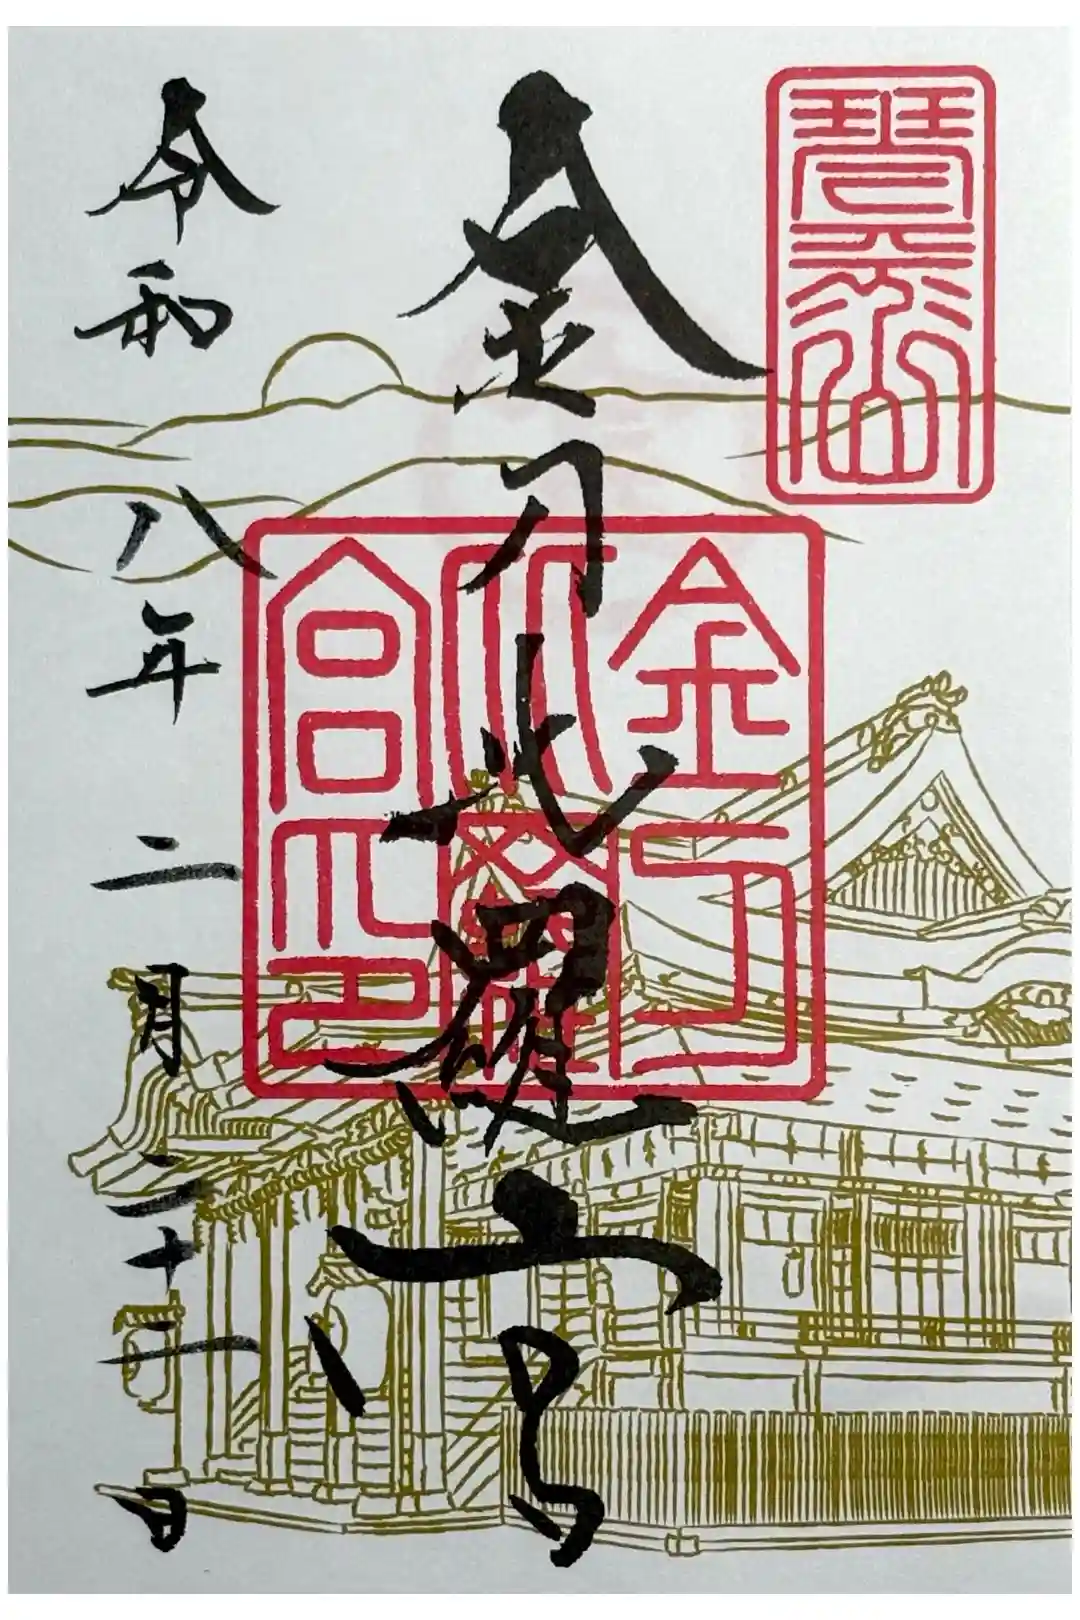 琴平山
金刀比羅宮
金刀比羅宮印
令和八年二月二十二日